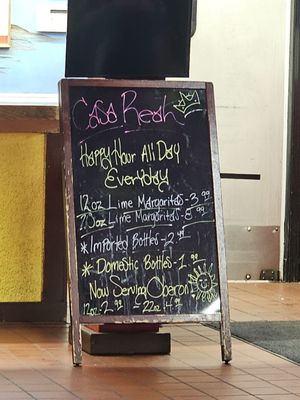 Casa Real
Happy Hour All Day
Everyday
12oz Lime Margaritas - 3.99
Lime Margaritas - 8.99
*Imported Bottles - 2.99
*Domestic Bottles - 1.99
Now Serving Oberon
12oz - 2.99 - 22oz - 4.99